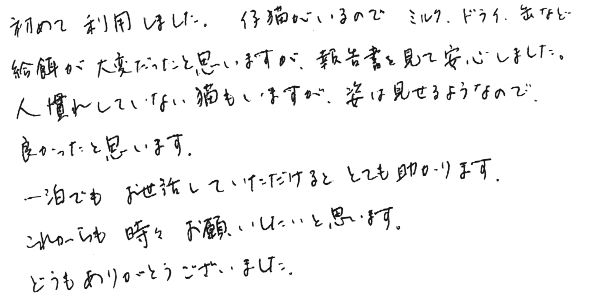 初めて利用しました。仔猫がいるので ミルク、ドライ、缶など
給餌が大変だったと思いますが、報告書を見て安心しました。
人慣れしていない猫もいますが、姿は見せるようなので、
良かったと思います。
一泊でもお世話していただけると とても助かります。
これからも 時々 お願いしたいと思います。
どうもありがとうございました。